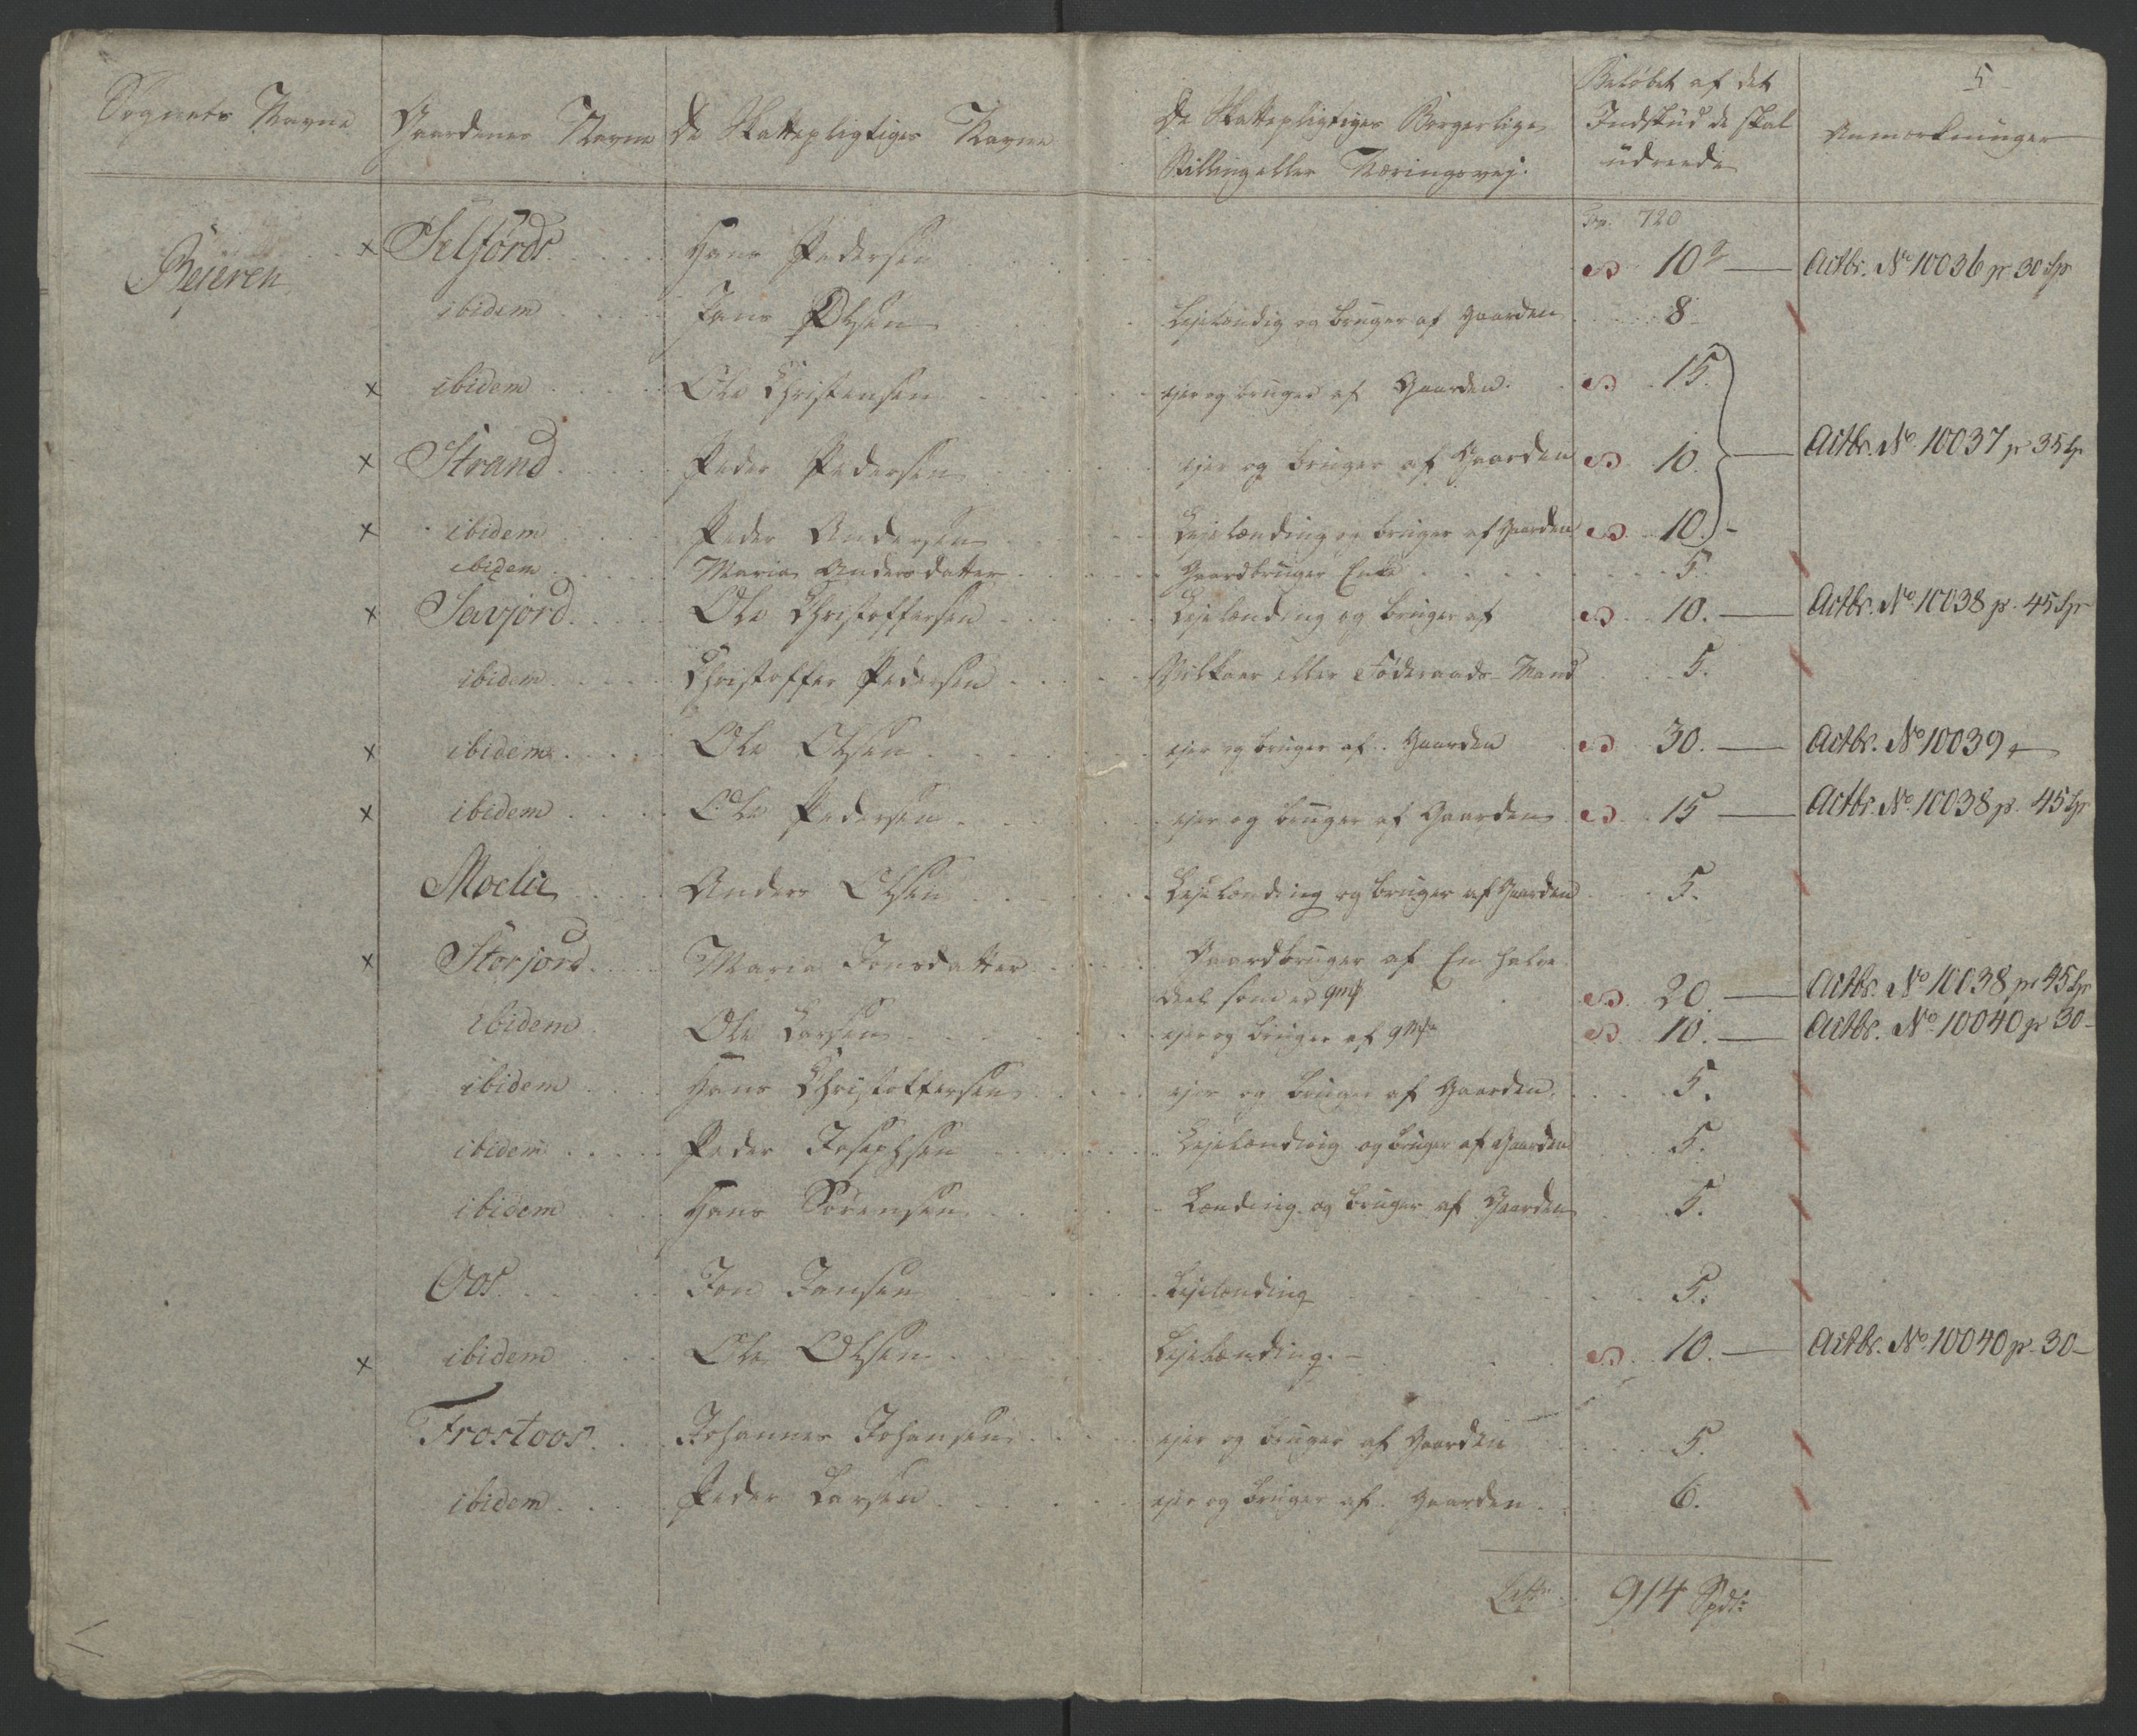 5
Sognets Navne Gaardenes Navne De Skattepligtiges Navne De Skattepligtiges Borgerlige Stilling eller Næringsvej. Beløbet af det Indskud de skal udreede Anmærkninger
Tr. 720
Bejeren × Selfords Hans Pedersen 10 Actbr. No 10036 pr 30 Sp
ibidem Jans Olsen Lejelændig og bruger af Gaarden 8
× ibidem Ole Christensen ejer og bruger af Gaarden 15.
× Strand Peder Pedersen ejer og bruger af Gaarden 10. Actbr. No 10037 pr 35 Sp
× ibidem Peder Andersen Lejelænding og bruger af Gaarden 10.
ibidem Maria Andersdatter Gaardbruger Enke 5.
× Savjord Ole Christoffersen Lejelænding og bruger af 10. Actbr. No 10038 pr. 45 Sp
ibidem Christoffer Pedersen Vilkaar eller Føderaads-Mand 5.
× ibidem Ole Olsen ejer og bruger af Gaarden 30. Actbr. No 10039
× ibidem Ole Pedersen ejer og bruger af Gaarden 15 Actbr. No 10038 pr. 45 Sp
Moelie Anders Olsen Lejelænding og bruger af Gaarden 5.
× Storjord Maria Jonsdatter Gaardbruger af En halv
Deel som er 20. Actbr. No 10038 pr 45 Sp
ibidem Ole Larsen ejer og bruger af 10. Actbr. No 10040 pr 30-
ibidem Hans Christoffersen ejer og bruger af Gaarden. 5.
ibidem Peder Josephsen Lejelænding og bruger af Gaarden 5.
ibidem Hans Sørensen Lænding og bruger af Gaarden 5.
Oos Jon Jonsen Lejelænding 5.
× ibidem Ole Olsen Lejelænding. 10. Actbr. No 10040 pr. 30-
Frostoos Johannes Johansen ejer og bruger af Gaarden 5.
ibidem Peder Larsen ejer og bruger af Gaarden 6.
914 Spdlr